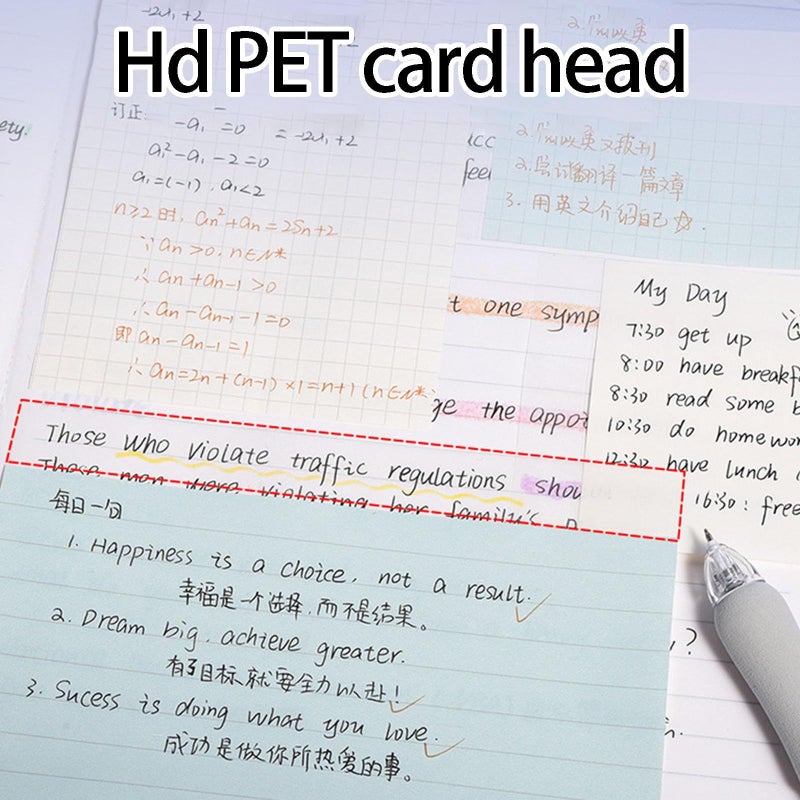 Hd PET card head
-2a₁+2
2.
ety.
订正:
-a₁ =0 = -2a₁+2
a₁²-a₁-2=0
a₁=(-1), a₁<2
n≥2时, an²+an=2Sn+2
∵an>0, n∈N*
∴an+an-1>0
∴an-an-1-1=0
即an-an-1=1
∴an=2n+(n-1)×1=n+1(n∈N*
ucc
feel
2. 英文报刊
2.尝试翻译一篇文章
3.用英文介绍自己
t one symp
ge the appot
My Day
7:30 get up
8:00 have breakf
8:30 read some b
10:30 do homewor
12:30 have lunch
16:30: free
Those who violate traffic regulations shou
Those men were violating her family's
每日一句
1. Happiness is a choice, not a result.
幸福是一个选择,而不是结果。
2. Dream big, achieve greater.
有了目标就要全力以赴!
3. Sucess is doing what you love.
成功是做你所热爱的事。
?